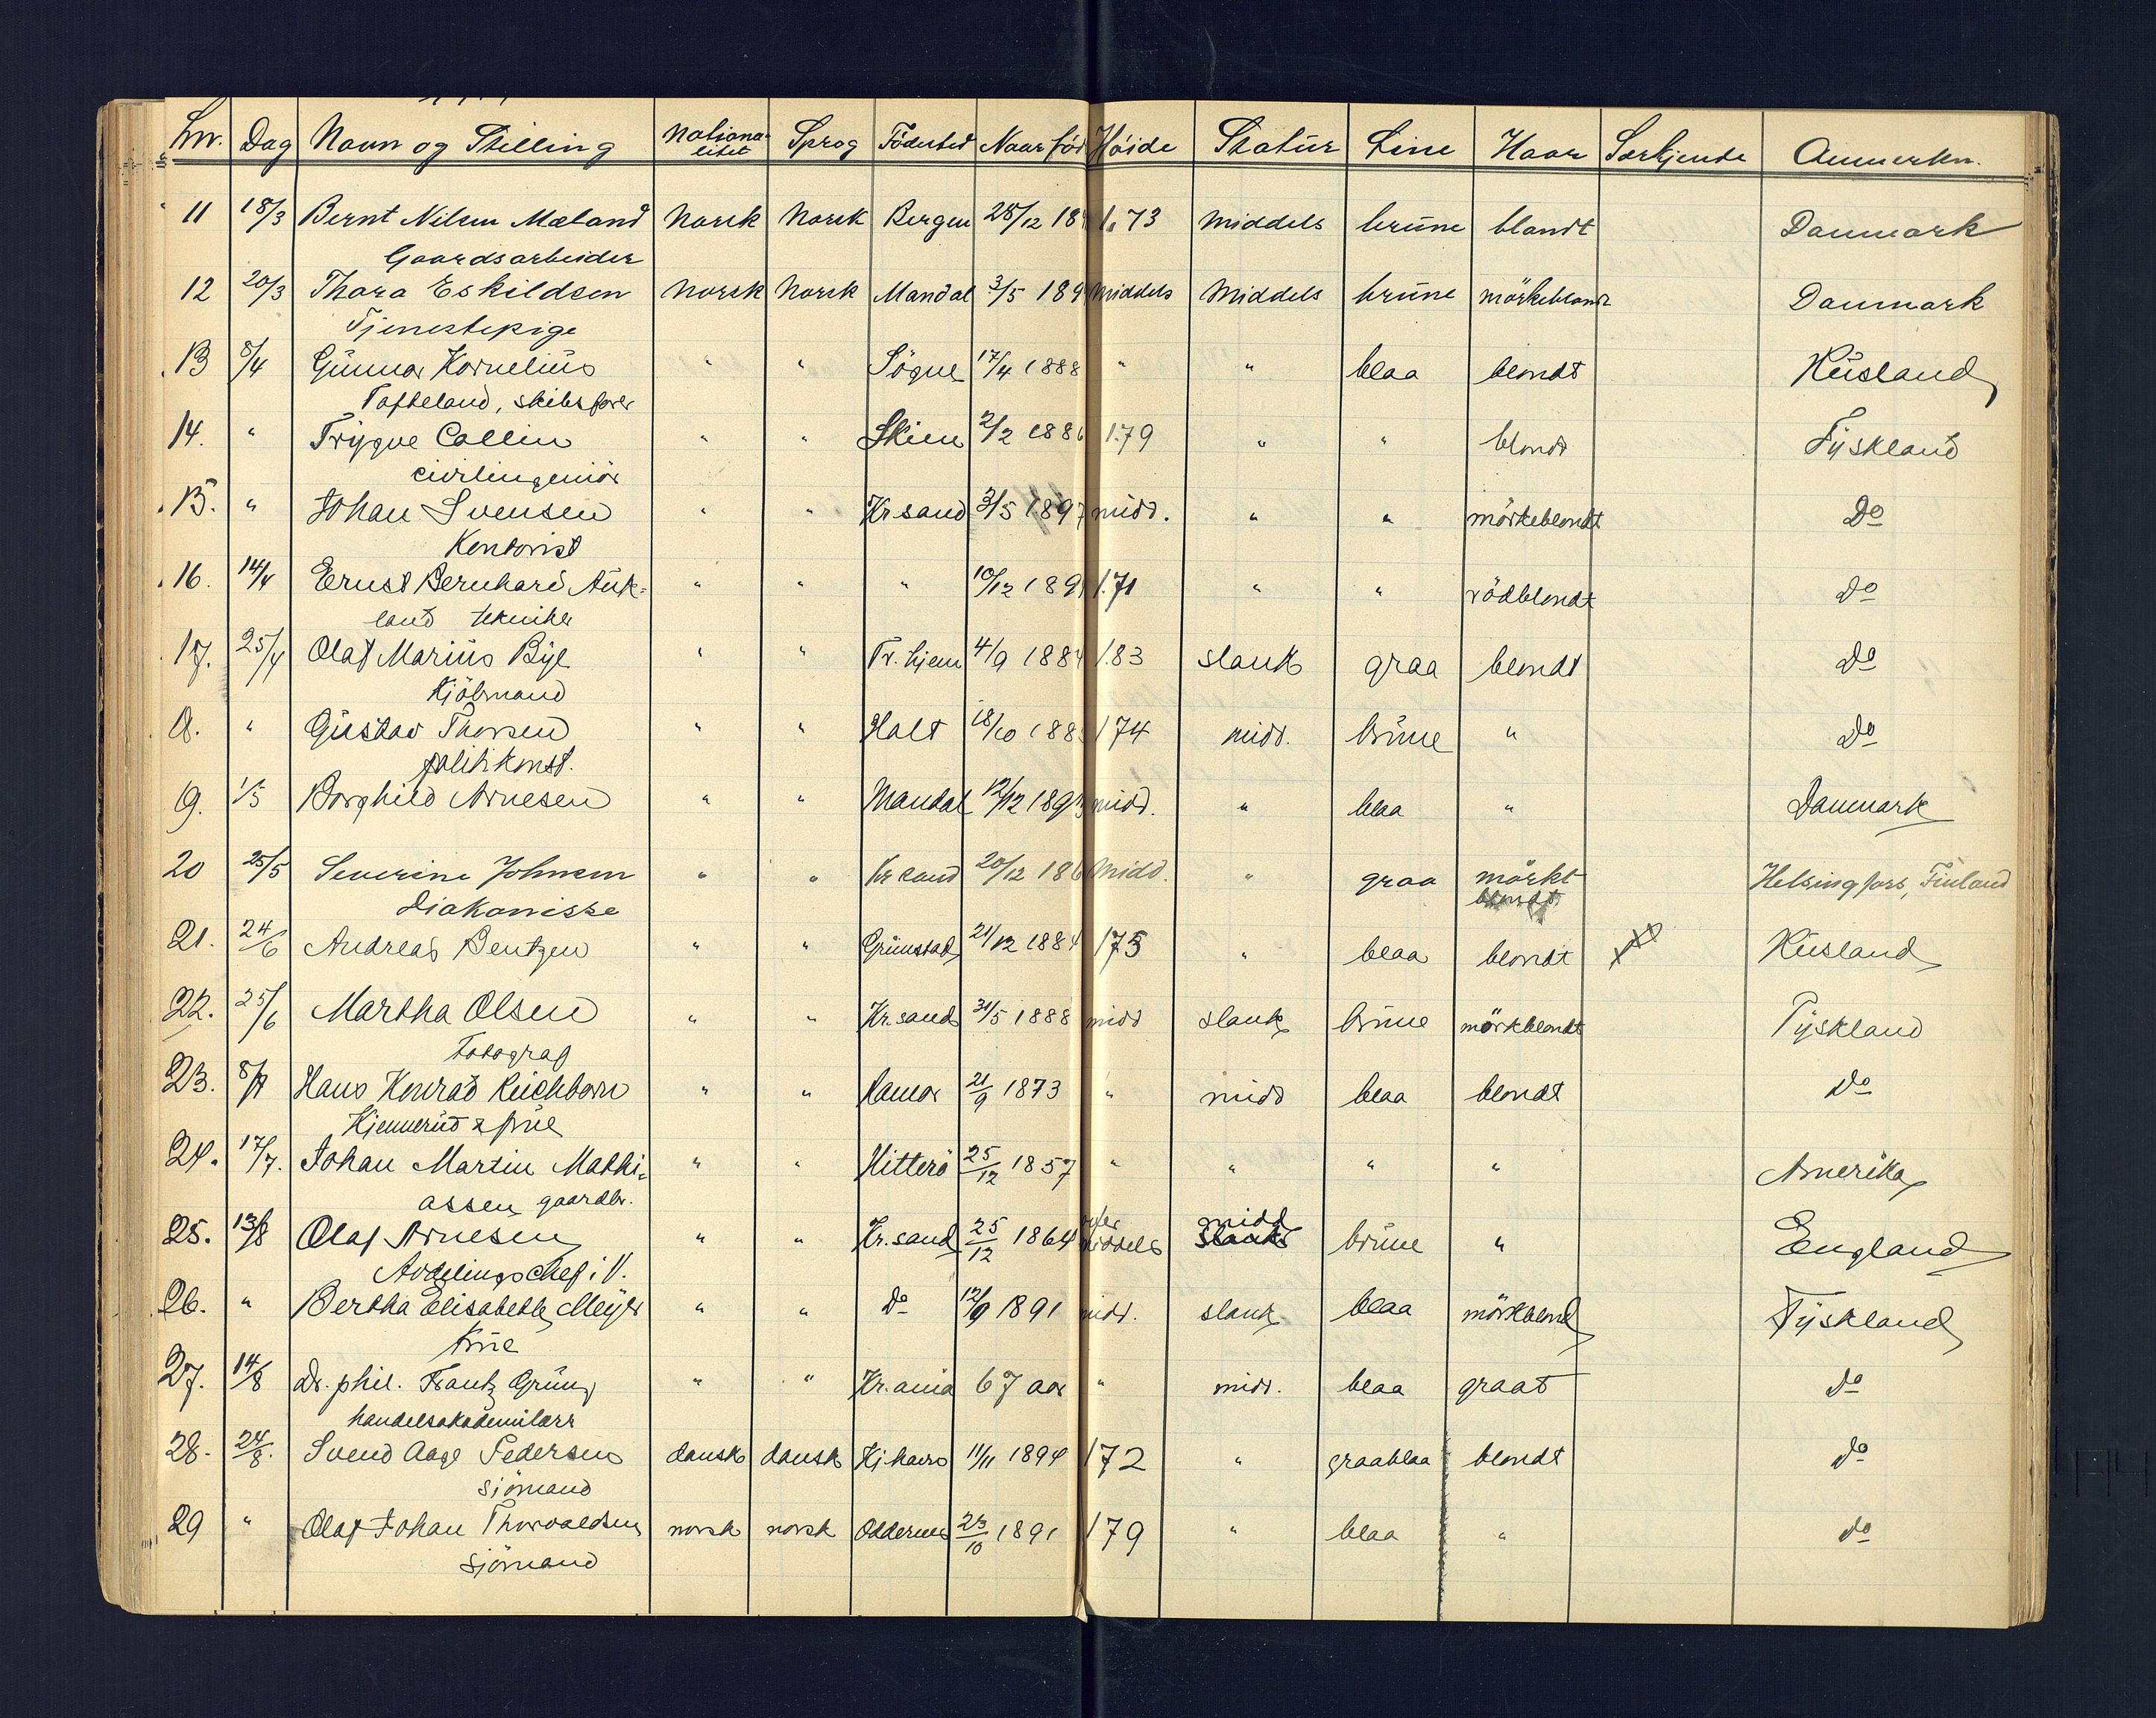 Lnr. Dag Navn og Stilling Nationa- Sprog Födested Naar fød Høide Statur Öine Haar Særkjende Anmerkn.
litet
11 18/3 Bernt Nilsen Mæland Norsk Norsk Bergen 28/12 18 1.73 Middels brune blondt Danmark
Gaardsarbeider
12 20/3 Thora Eskildsen Norsk Norsk Mandal 3/5 189 Middels Middels brune mörkeblondt Danmark
Tjenestepige
13 8/4 Gunnar Kornelius " " Sögne 17/4 1888 " " blaa blondt Rusland
Tofteland, skibsfører
14. " Trygve Collin " " Skien 2/2 1886 1.79 " " blondt Tyskland
civilingeniör
15. " Johan Svensen " " Kr.sand 3/5 1897 midd. " " mörkeblondt Do
Kontorist
16. 14/4 Ernst Bernhard Auk- " " " 10/12 189 1.71 " " rödblondt Do
land tekniker
17. 25/4 Olaf Marius Bye " " Tr.hjem 4/9 1884 1.83 slank graa blondt Do
Kjöbmand
18. " Gustav Thorsen " " Holt 18/10 188 174 midd. brune " Do
politikonst.
19. 1/5 Borghild Arnesen " " Mandal 12/12 1893 midd. " blaa " Danmark
20 25/5 Severine Johnsen " " Kr sand 20/12 186 Midd. " graa mörkt Helsingfors, Finland
Diakonisse blondt
21. 24/6 Andreas Bentzen " " Grimstad 21/12 1884 175 " blaa blondt Rusland
22. 25/6 Martha Olsen " " Kr.sand 31/5 1888 midd slank brune mörkblondt Tyskland
Fotograf
23. 8/7 Hans Konrad Reichborn " " Hamar 21/9 1873 " midd blaa blondt Do
Kjennerud & frue
24. 17/7. Johan Martin Mathi- " " Hitterö 25/12 1857 " " " " Amerika
assen gaardbr.
25. 13/8 Olaf Arnesen " " Kr.sand 25/12 1864 over middels midd slank brune " England
Avdelingschef i V.
26. " Bertha Elisabeth Meyer " " Do 12/9 1891 midd. slank blaa mörkblond Tyskland
frue
27. 14/8 Dr. phil. Frantz Grüng " " Kr.ania 67 aar " midd. blaa graat Do
handelsakademilærer
28. 24/8. Svend Aage Pedersen dansk dansk Kj.havn 11/11 1894 172 " graablaa blondt Do
sjömand
29 " Olaf Johan Thorvaldsen norsk norsk Oddernes 23/10 1891 179 " blaa " do
sjömand